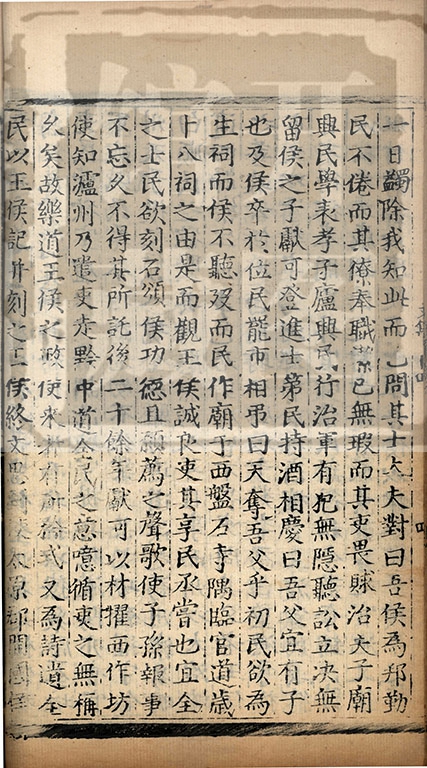 一日蠲除我知此而已問其士大夫對曰吾侯為邦勤
民不倦而其僚奉職潔己無瑕而其吏畏賕治夫子廟
興民學表孝子廬興民行治軍有犯無隱聽訟立決無
留侯之子獻可登進士第民持酒相慶曰吾父宜有子
也及侯卒於位民罷市相弔曰天奪吾父乎初民欲為
生祠而侯不聽歿而民作廟于西盤石寺隅臨官道歲
十八祠之由是而觀王侯誠良吏其享民丞嘗也宜全
之士民欲刻石頌侯功德且願薦之聲歌使子孫報事
不忘久不得其所託後二十餘年獻可以材擢西作坊
使知瀘州乃遣吏走黔中道全民之意噫循吏之無稱
久矣故樂道王侯之政使來者有所 式又為詩遺全
民以王侯記并刻之王侯終文思 使太原郡開國侯